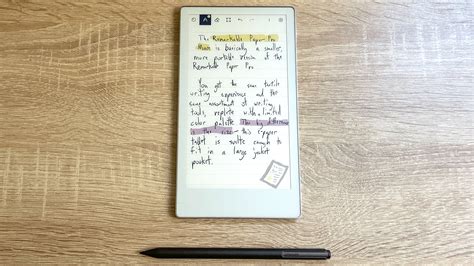 The Remarkable Paper Pro
Move is basically a smaller,
more portable version of the
Remarkable Paper Pro
You get the same tactile
writing experience and the
same assortment of writing
tools, replete with a limited
color palette. The big difference
is the size - this epaper
tablet is svelte enough to
fit in a large jacket
pocket.